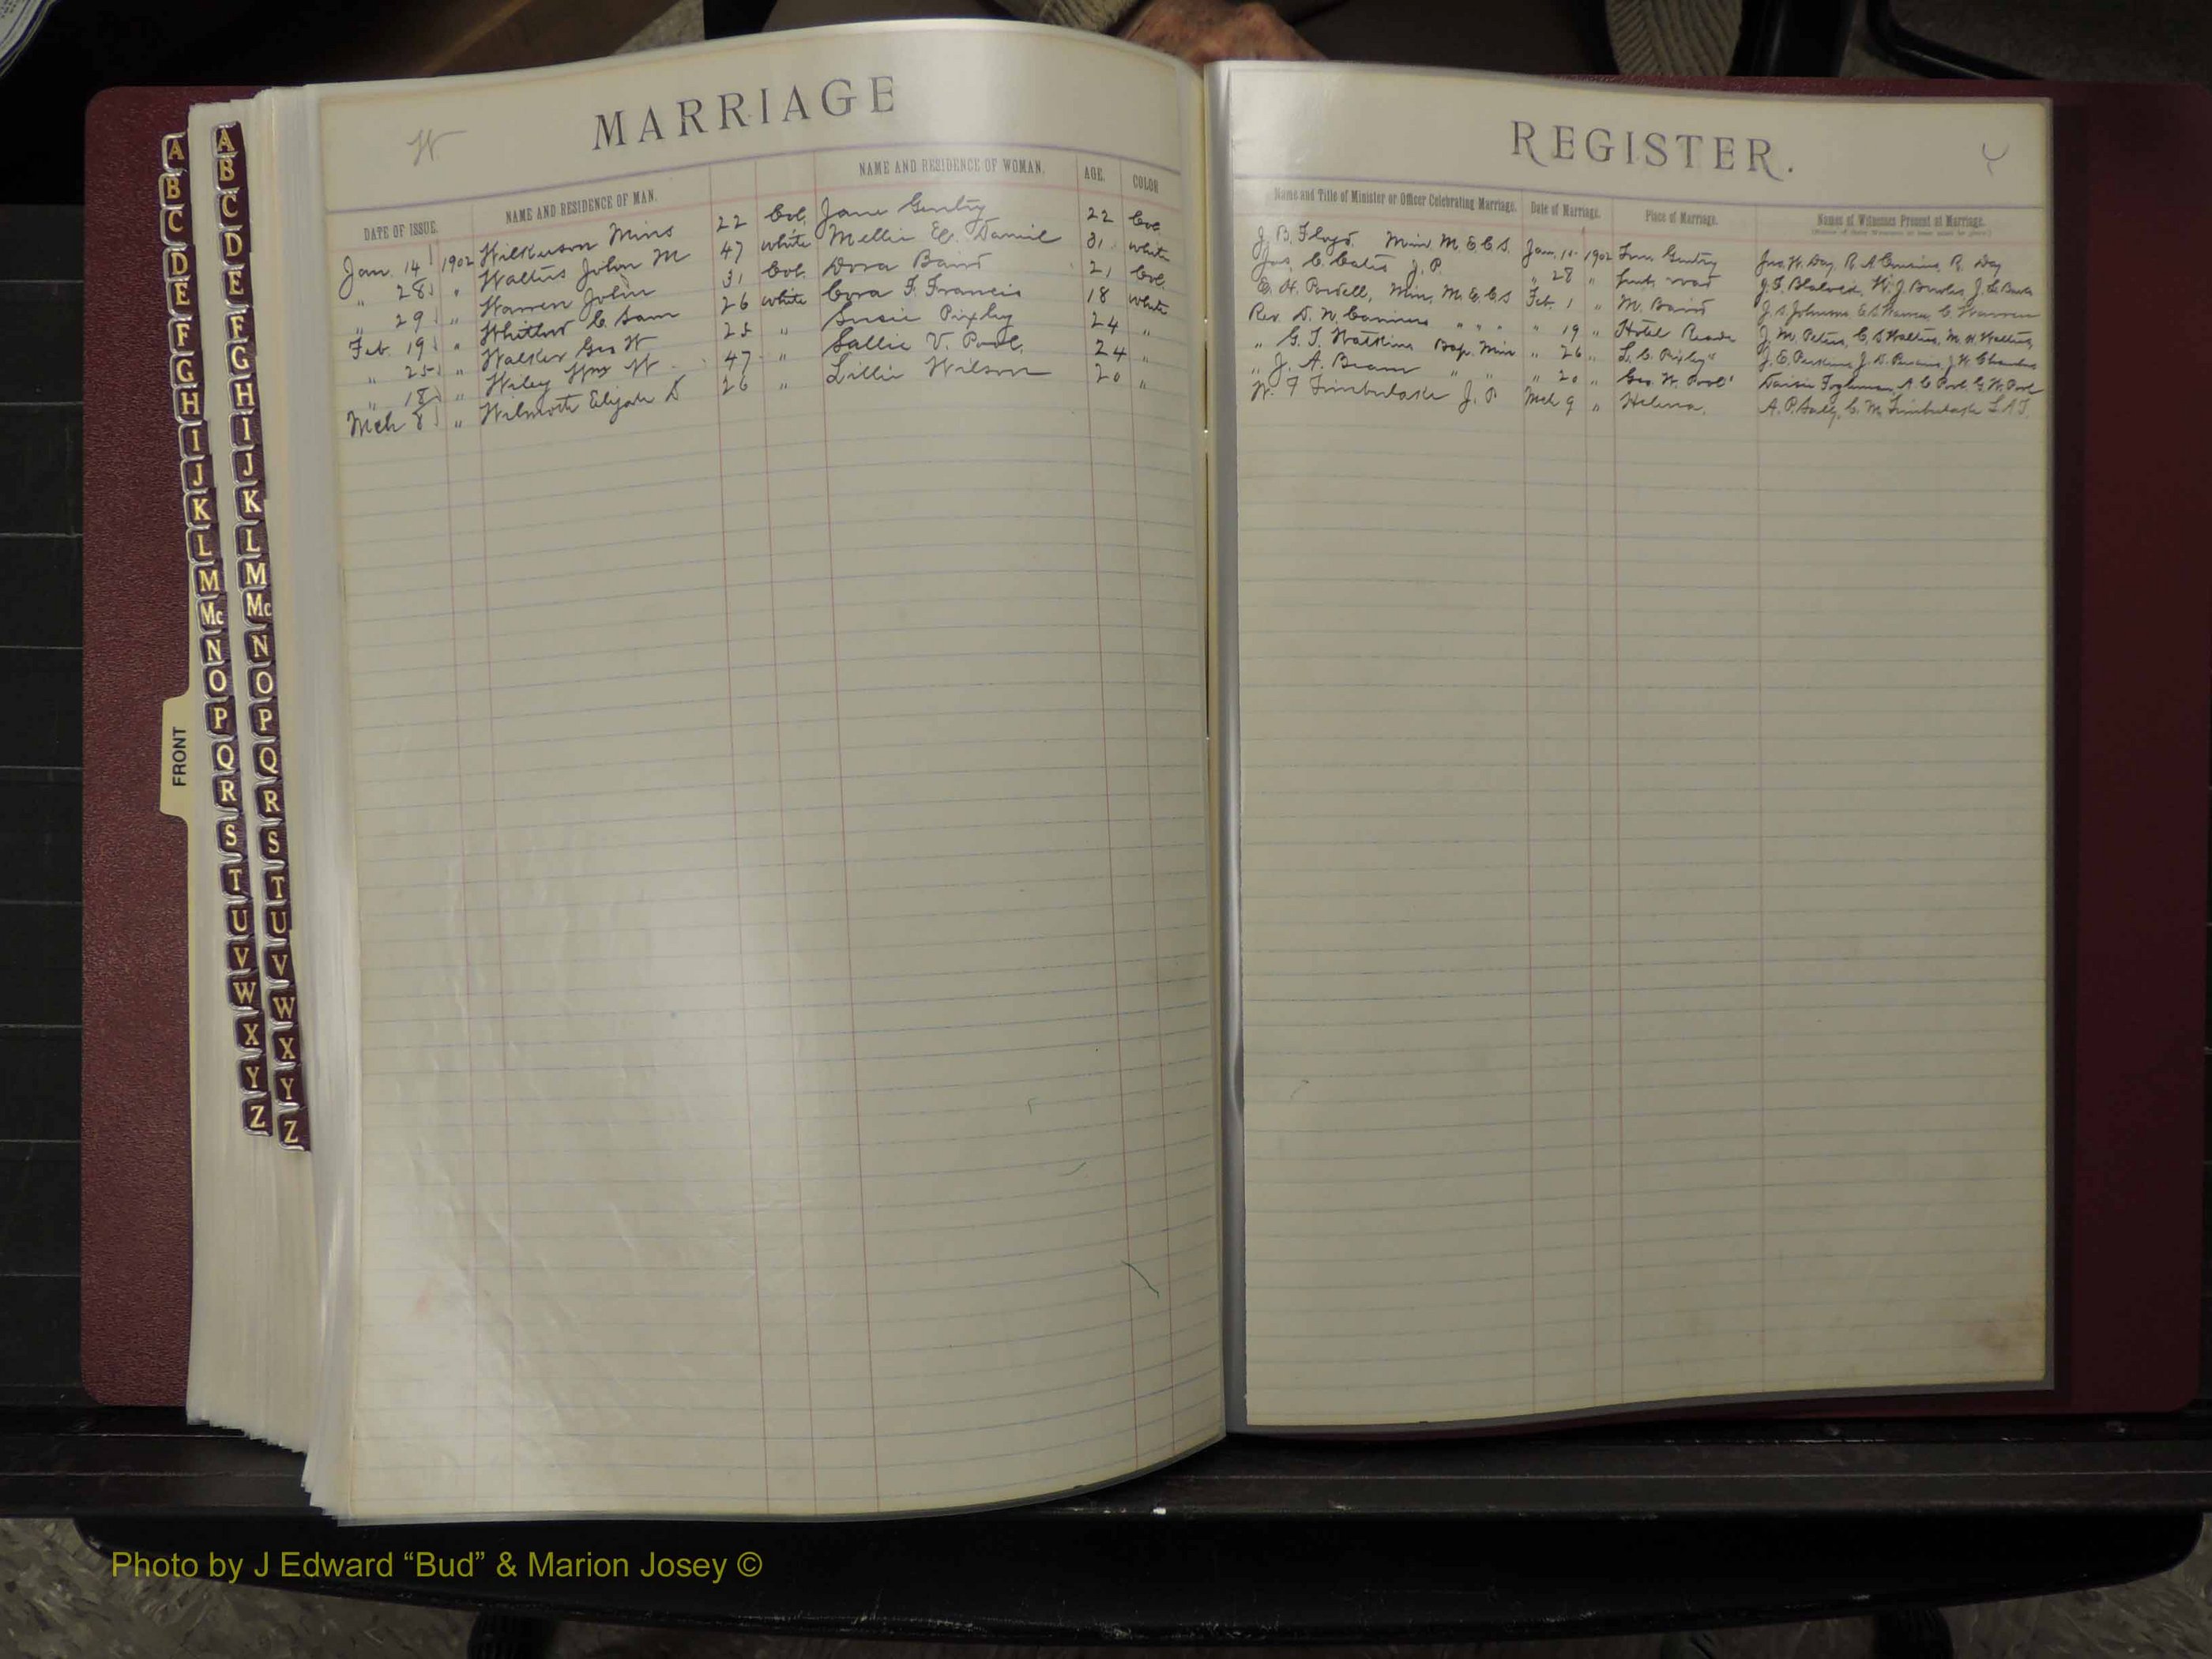 W
MARRIAGE
DATE OF ISSUE. NAME AND RESIDENCE OF MAN. NAME AND RESIDENCE OF WOMAN. AGE. COLOR
Jan. 14 1902 Wilkerson Mins 22 Col. Jane Gentry 22 Col.
" 28 " Walters John M 47 white Mellie E. Daniel 31 white
" 29 " Warren John 31 Col. Dora Baird 21 Col.
Feb. 19 " Whitlow C Sam 26 white Cora F. Francis 18 white
" 25 " Walker Geo W 25 " Susie Pixley 24 "
" 18 " Wiley Wm W. 47 " Sallie V. Pool 24 "
Mch 8 " Wilmoth Elijah D 26 " Lillie Wilson 20 "
REGISTER.
Name and Title of Minister or Officer Celebrating Marriage. Date of Marriage. Place of Marriage. Names of Witnesses Present at Marriage.
J. B. Floyd. Min. M E C S. Jan. 15 1902 Gentry Jno. W. Day, R. A. R. Day
Jas. C. Cates J. P. " 28 " road J. F. Blalock, W. J.
E. H. Powell, Min. M. E. C S Feb. 1 " M. Baird J. S. Johnson, C Warren
Rev. D. N. Caviness " " " " 19 " Hotel J. M. Peters, C. S Walters, M. H. Walters,
" G. T. Watkins Bap. Min " 26 " L. C. Pixley's J. E. Perkins
" J. A. Beam " " " 20 " Geo. W. Pool's A. C Pool G. W. Pool
W. F Timberlake J. P. Mch 9 " Helena. C. M. Timberlake
A
B
C
D
E
F
G
H
I
J
K
L
M
Mc
N
O
P
Q
R
S
T
U
V
W
X
Y
Z
A
B
C
D
E
F
G
H
I
J
K
L
M
Mc
N
O
P
Q
R
S
T
U
V
W
X
Y
Z
FRONT
Photo by J Edward “Bud” & Marion Josey ©